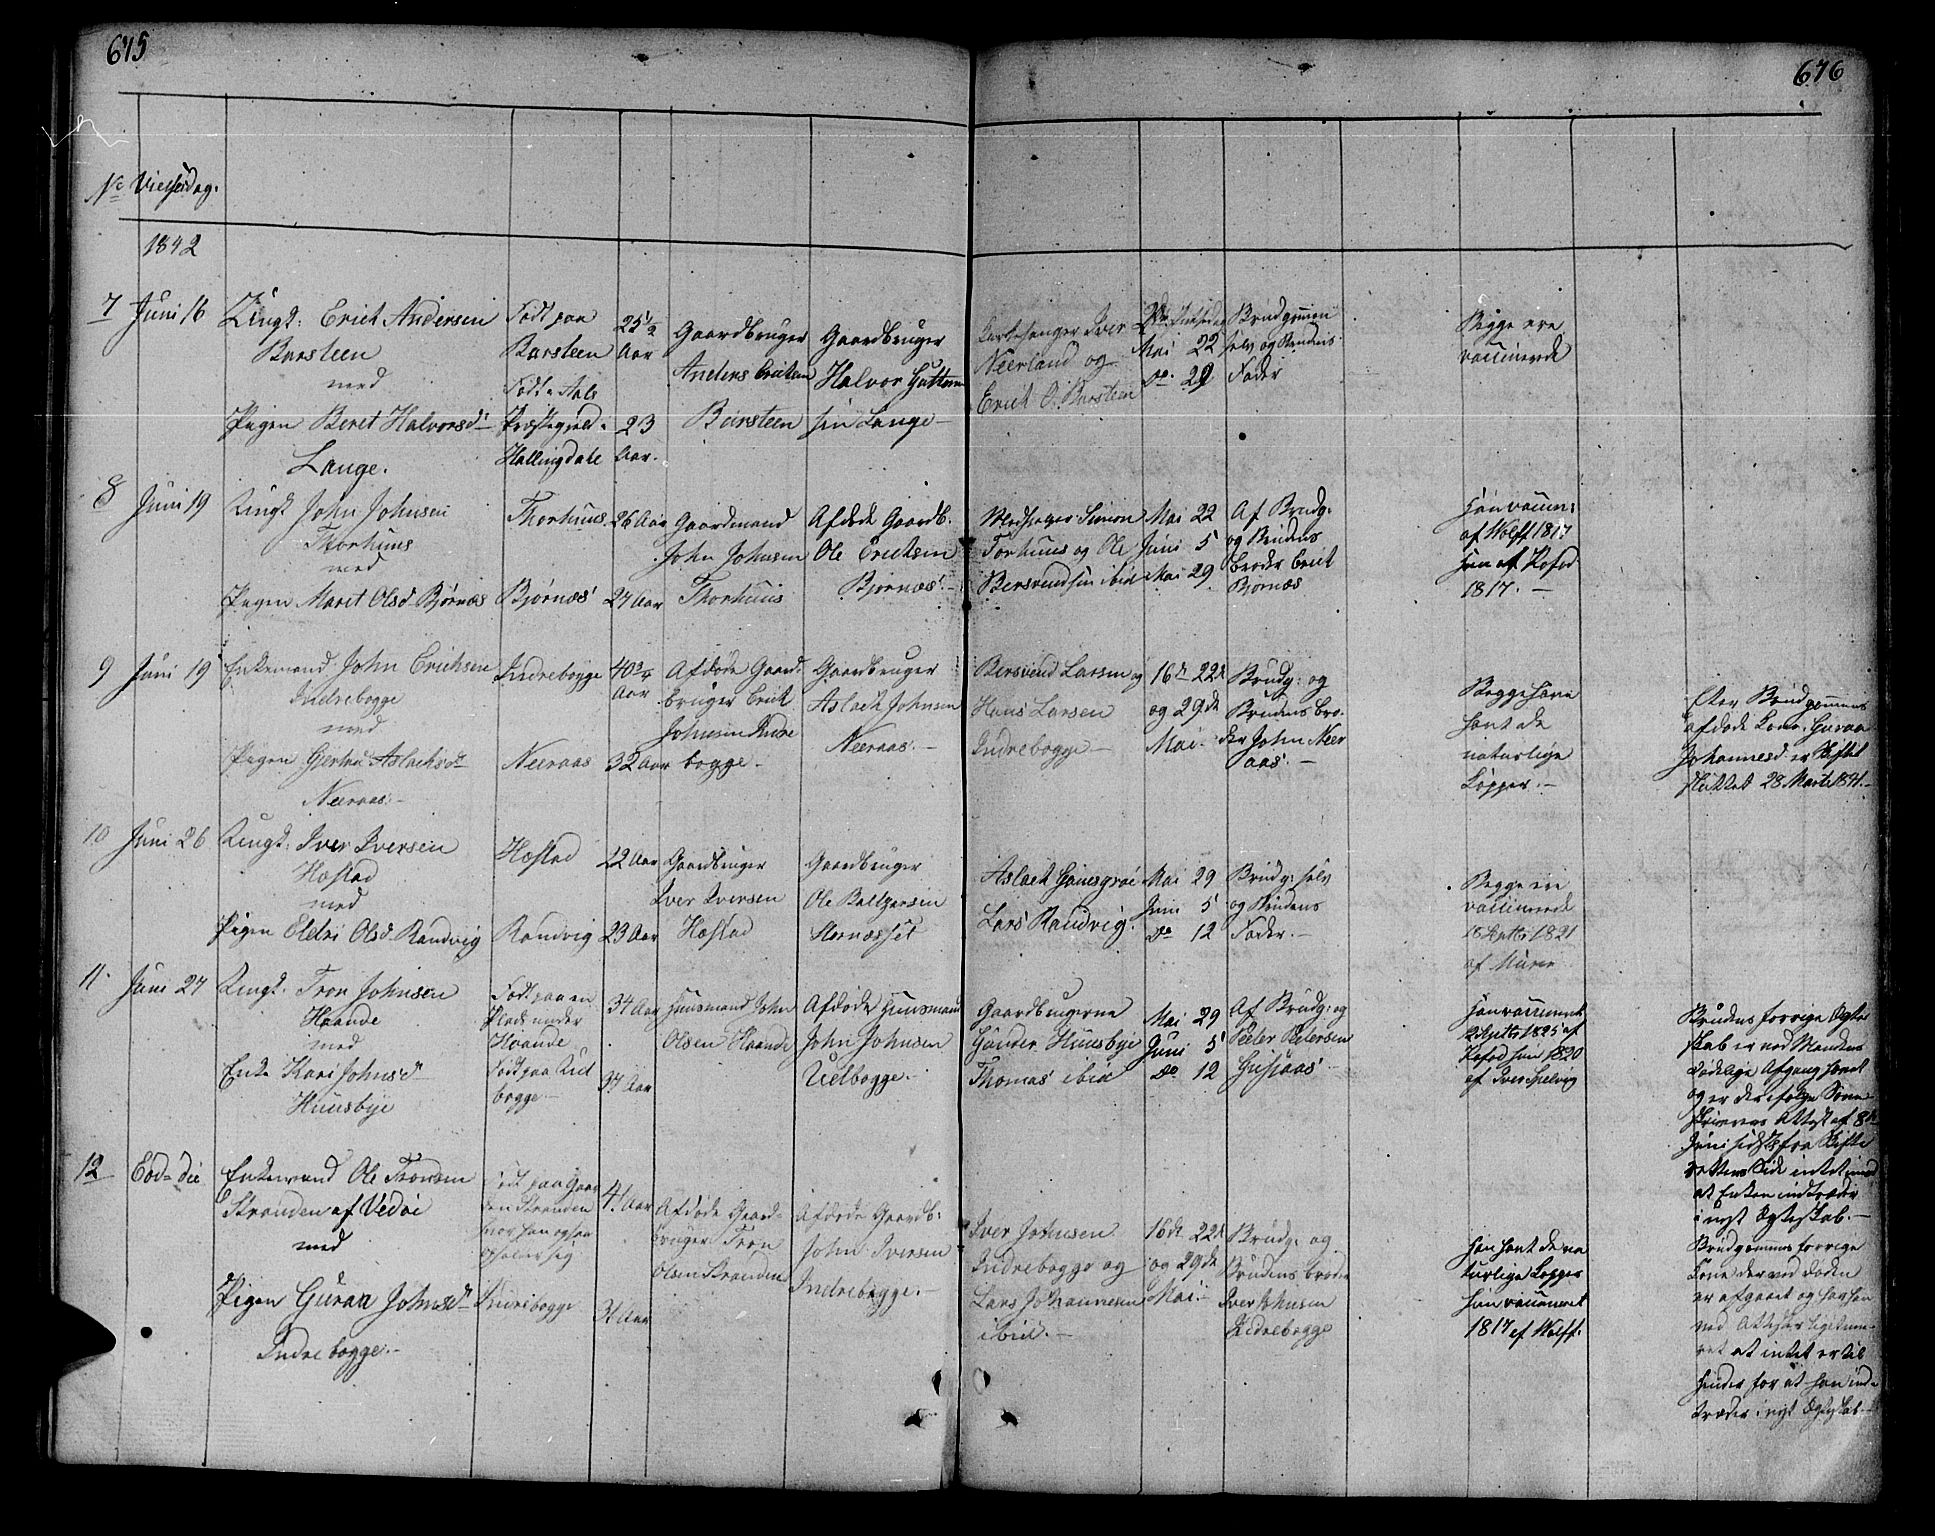 675
676
No Vielsesdag.
1842
7 Juni 16
Ungk: Erick Andersen
Barsteen
med
Pigen Beret Halvorsd
Lange.
Født paa
Barsteen
Født Aals
Præstegield
Hallingdale
25 1/2
Aar
23
Aar.
Gaardbruger
Anders Ericksen
Barsteen
Gaardbruger
Halvor Guttorm
sen Lange
Kirkesanger Iver
Neerland og
Erick O. Barsteen
2den Pintsedag
Mai 22
do. 29
Brudgommen
selv og Brudens
Fader
Begge ere
vaccinerede
8 Juni 19
Ungk John Johnsen
Thorhuus
med
Pigen Maret Olsd Bjørnæs
Thorhuus
Bjørnæs
26 Aar
27 Aar
Gaardmand
John Johnsen
Thorhuus
Afdøde Gaardb.
Ole Ericksen
Bjørnæs.
Medhjelper Simon
Torhuus og Ole
Bersvendsen ibid
Mai 22
Juni 5
Mai 29
Af Brudg:
og Brudens
broder Erick
Bjørnæs
Han vaccin:
af Wolff 1817
hun af Kofod
1817.
9 Juni 19
Enkemand John Erichsen
Indrebogge
med
Pigen Gjertru Aslachsd
Neeraas.
Indrebogge
Neeraas
40 3/4
Aar
32 Aar
Afdøde Gaard:
bruger Erick
Johnsen Indre
bogge.
Gaardbruger
Aslach Johnsen
Neeraas.
Bersvend Larsen og
Hans Larsen
Indrebogge
16de 22de
og 29de
Mai.
Brudg: og
Brudens bro-
der John Neer
aas.
Begge have
havt de
naturlige
Kopper.
Efter Brudgommens
afdøde Kone Guraa
Johannesd. er Skiftet
sluttet 28 Marts 1841.
10 Juni 26
Ungk: Iver Iversen
Hæstad
med
Pigen Eldri Olsd Randvig
Hæstad
Randvig
22 Aar
23 Aar
Gaardbruger
Iver Iversen
Hæstad
Gaardbruger
Ole Baltzersen
Stornæsset
Aslack Gansgrøe
Lars Randvig.
Mai 29
Juni 5
do 12
Brudg: selv
og Brudens
Fader.
Begge ere
vaccinerede
18 Septbr 1821
af
11 Juni 24
Ungk. Tron Johnsen
Haande
med
Enke Kari Johnsd
Huusbye
Født paa en
Plads under
Haande
Født paa Ud
bogge
34 Aar
37 Aar
Huusmand John
Olsen Haande
Afdøde Huusmand
John Johnsen
Uelbogge.
Gaardbrugerne
Gunder Huusbye
Thomas ibid
Mai 29
Juni 5
do 12
Af Brudg: og
Peder Petersen
Gusiaas
Han vaccineret
2 Septbr 1825 af
Kofod hun 1820
af Iver Helvig
Brudens forrige Ægte
skab er ved Mandens
dødelige Afgang hævet
og er der ifølge Soren
skriverens Attest af 8de
Juni sidste fra Skifte
rettens Side intet imod
at Enken indtræder
i nyt Ægteskab.
12 Eod: die
Enkemand Ole Tronsen
Stranden af Vedøe
med
Pigen Guraa Johnsd
Indrebogge.
Født paa Gaar
den Stranden
hvor han og
opholder sig
Indrebogge
41 Aar
31 Aar
Afdøde Gaard-
bruger Tron
Olsen Stranden
Afdøde Gaardb:
John Iversen
Indrebogge.
Iver Johnsen
Indrebogge og
Lars Johannesen
ibid.
16de 22de
og 29de
Mai.
Brudg: og
Brudens broder
Iver Johnsen
Indrebogge
Han havt de na
turlige Kopper
hun vaccineret
1817 af Wolff.
Brudgommens forrige
Kone der ved Døden
er afgaaet og har han
ved Attester legitime-
ret at intet er til
Hinder for at han ind-
træder i nyt Ægteskab.